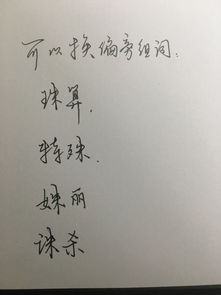 可以换偏旁组词:
珠算.
特殊.
姝丽
诛杀